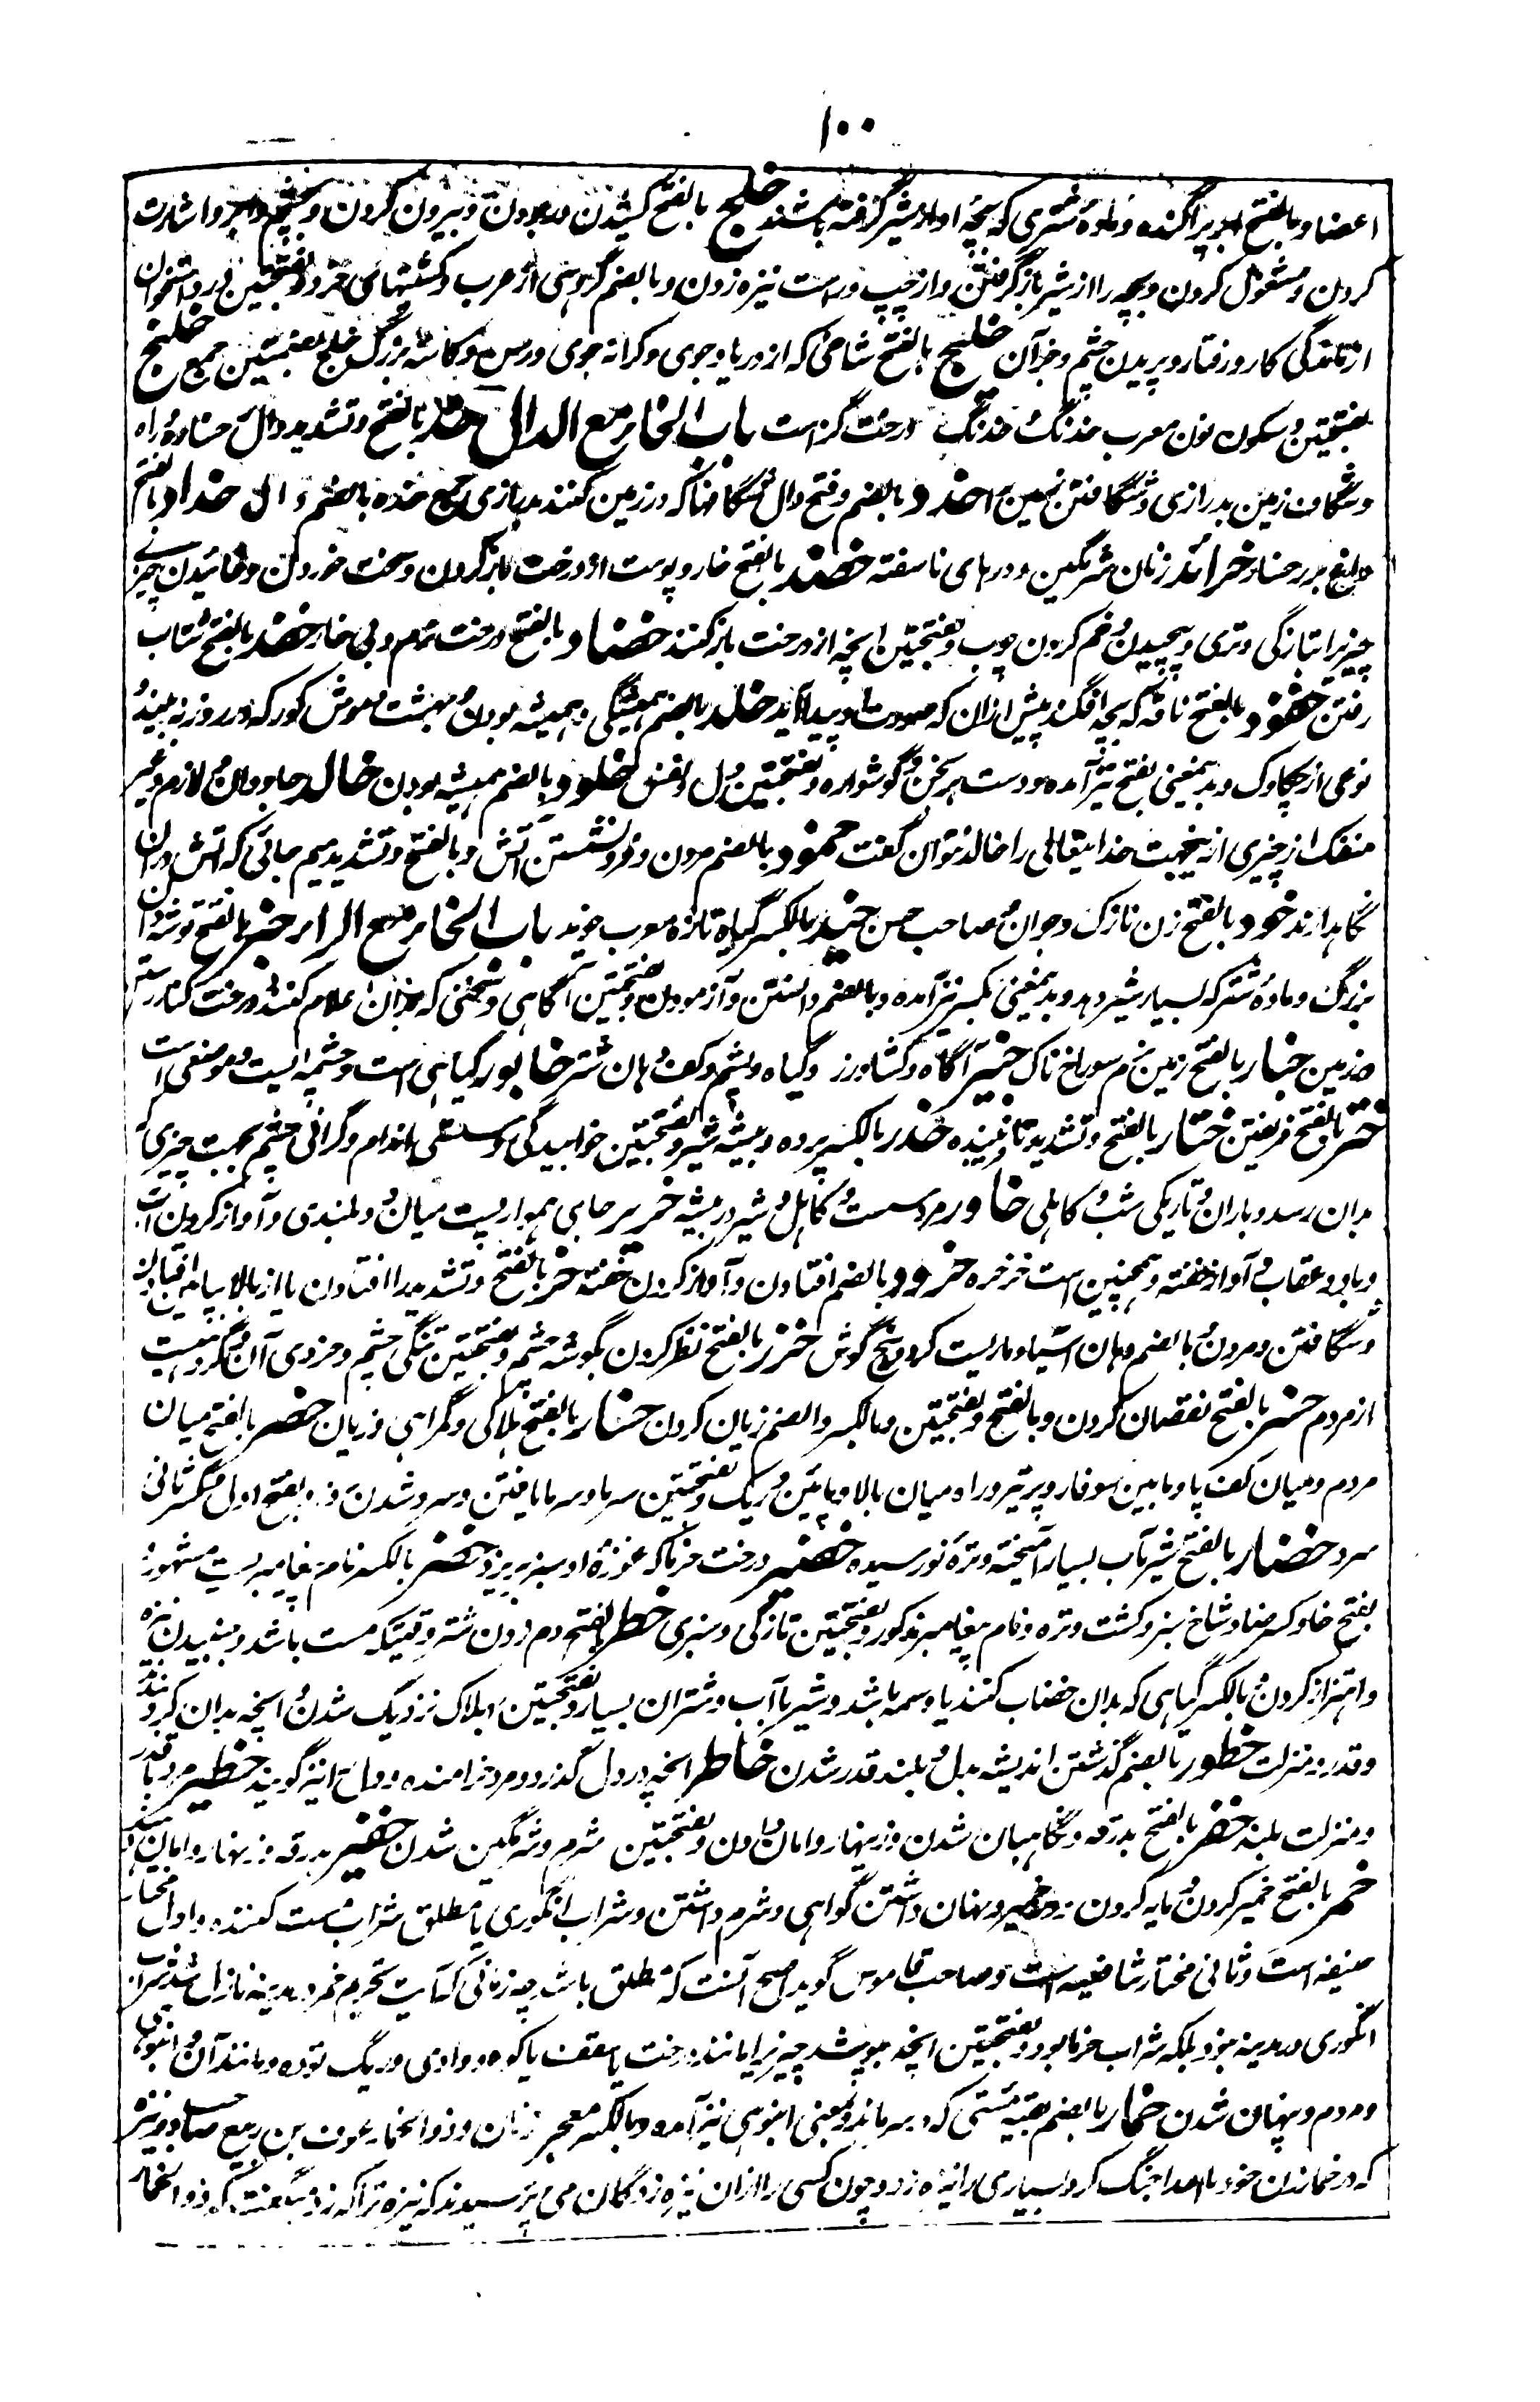 ۱۰۰
اعضا و بالفتح ابر پراگنده و ماده شتری که بچهٔ او از شیر گرفته باشند خلج بالفتح کشیدن و ربودن و بیرون کردن و بچشم و ابرو اشارت
کردن و مشغول کردن و بچه را از شیر باز گرفتن و از چپ و راست نیزه زدن و بالضم گروهی از عرب و کشتیهای خرد و بفتحتین درد استخوان
از ماندگی کار و رفتار و پریدن چشم و جز آن خلیج بالفتح شاخی که از دریا و جوی و کرانه جوی و رسن و کاسهٔ بزرگ خلج بضمتین جمع خلنج
بفتحتین و سکون نون معرب خدنگ خدنگ درخت گز است باب الخاء مع الدال خد بالفتح و تشدید دال رخساره و راه
و شگاف زمین بدرازی و شگافتن زمین را خدد بالضم و فتح دال شگافها که در زمین کنند ببازی جمع خده بالضم و ال خداد بالفتح
داغ بر رخسار خرائد زنان شرمگین و درهای ناسفته خضد بالفتح خار و پوست از درخت باز کردن و سخت خوردن و خائیدن چیزی
چیز را بتازگی و تری و پیچیدن و خم کردن چوب و بفتحتین انچه از درخت باز کنند خضاد بالفتح درخت نرم و بی خار خفد بالفتح شتاب
رفتن خفود بالفتح ناقه که بچه افگند پیش ازان که صورت او پیدا آید خلد بالضم همیشگی و همیشه بودن و بهشت و موش کور که در روز نه بیند و
نوعی از چکاوک و بدینمعنی بفتح نیز آمده و دست برنجن و گوشواره و بفتحتین دل و نفس خلود بالضم همیشه بودن خالد جاودان و لازم و غیر
منفک از چیزی ازینجهت خدایتعالی را خالد نتوان گفت خمود بالضم مردن و فرو نشستن آتش و بالفتح و تشدید میم جائی که آتش دران
نگاهدارند خود بالفتح زن نازک و جوان و صاحب حسن خید بالکسر گیاه تازه معرب خوید باب الخاء مع الراء خبر بالفتح توشه‌دان
بزرگ و ماده شتر که بسیار شیر دهد و بدینمعنی بکسر نیز آمده و بالضم دانستن و آزمودن و بفتحتین آگاهی و سخنی که بدان اعلام کنند و درخت کنار رستن
در زمین خبار بالفتح زمین نرم سوراخ ناک خبیر آگاه و کشاورز و گیاه و پشم و کف دهان شتر خابور گیاهی است و چشمه ایست و موضعی است
ختر بالفتح فریفتن ختار بالفتح و تشدید تا فریبنده خدر بالکسر پرده و بیشه شیر و بفتحتین خوابیدگی و سستی اندام و گرانی چشم بجهت چیزی که
بدان رسد و باران و تاریکی شب و کاهلی خادر مرد سست و کاهل و شیر در بیشه خریر جای هموار پست میان دو بلندی و آواز کردن آب
و باد و عقاب و آواز خفته و همچنین است خرخره خرور بالضم افتادن و آواز کردن خفته خر بالفتح و تشدید را افتادن یا از بالا بپایین افتادن
و شگافتن و مردن و بالضم دهان آسیا و ماریست کر و پیچ گوش خزر بالفتح نظر کردن بگوشه چشم و بفتحتین تنگی چشم و خردی آن و گروهیست
از مردم خسر بالفتح نقصان کردن و بالفتح و بفتحتین و بالکسر و الضم زیان کردن خسار بالفتح هلاکی و گمراهی و زیان خصر بالفتح میان
مردم و میان کف پا و مابین سوفار و پر تیر و راه میان بالا و پائین ریگ و بفتحتین سرما و سرما یافتن و سرد شدن روز و بفتح اول و کسر ثانی
سرد خضار بالفتح شیر آب بسیار آمیخته و ترهٔ نو رسیده خضیر درخت خرما که غورهٔ او سبز بریزد خضر بالکسر نام پیغامبریست مشهور و
بفتح خا و کسر ضاد شاخ سبز و کشت و تره و نام پیغامبر مذکور و بفتحتین تازگی و سبزی خطر بالفتح دم زدن شتر وقتیکه مست باشد و جنبیدن نیزه
و اهتزاز کردن و بالکسر گیاهی که بدان خضاب کنند یا وسمه باشد و شیر با آب و شتران بسیار و بفتحتین بهلاک نزدیک شدن و انچه بدان گرو بندند
و قدر و منزلت خطور بالضم گذشتن اندیشه بدل و بلند قدر شدن خاطر انچه در دل گذرد و مرد خرامنده و دل را نیز گویند خطیر مرد با قدر
و منزلت بلند خفر بالفتح بدرقه و نگاهبان شدن و زینهار و امان دادن و بفتحتین شرم و شرمگین شدن خفیر بدرقه و زینهار و امان دهنده
خمر بالفتح خمیر کردن و مایه کردن در خمیر و پنهان داشتن گواهی و شرم داشتن و شراب انگوری یا مطلق شراب مست کننده و اول مختار
حنیفه است و ثانی مختار شافعیه است و صاحب قاموس گوید اصح آنست که مطلق باشد چه زمانی که آیت تحریم خمر در مدینه نازل شد شراب
انگوری در مدینه نبود بلکه شراب خرما بود و بفتحتین انچه بپوشد چیز را مانند درخت یا سقف یا کوه و وادی و ریگ توده و مانند آن و انبوهی
مردم و پنهان شدن خمار بالضم بقیه مستی که در سر ماند و بمعنی انبوهی نیز آمده و بالکسر معجر زنان و ذو الخمار عوف بن ربیع صاحب
که در خمار زن خود با اعدا جنگ کرد و بسیاری را نیزه زد و چون کسی را ازان نیزه زدگان می پرسیدند که نیزه ترا که زد میگفت که ذو الخمار